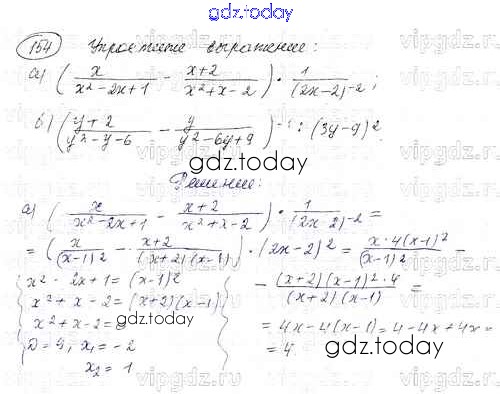 gdz.today
154 Упростите выражение:
а) (x/(x²-2x+1) - (x+2)/(x²+x-2)) · 1/(2x-2)⁻²;
б) ((y+2)/(y²-y-6) - y/(y²-6y+9))⁻¹ : (3y-9)².
gdz.today
Решение:
а) (x/(x²-2x+1) - (x+2)/(x²+x-2)) · 1/(2x-2)⁻² =
= (x/(x-1)² - (x+2)/((x+2)(x-1))) · (2x-2)² = x·4(x-1)²/(x-1)² -
x² - 2x+1 = (x-1)²
- (x+2)(x-1)²·4/((x+2)(x-1)) =
x² + x - 2 = (x+2)(x-1)
x² + x - 2 = 0
gdz.today
= 4x - 4(x-1) = 4 - 4x + 4x =
D = 9, x₁ = -2
= 4.
x₂ = 1
gdz.today